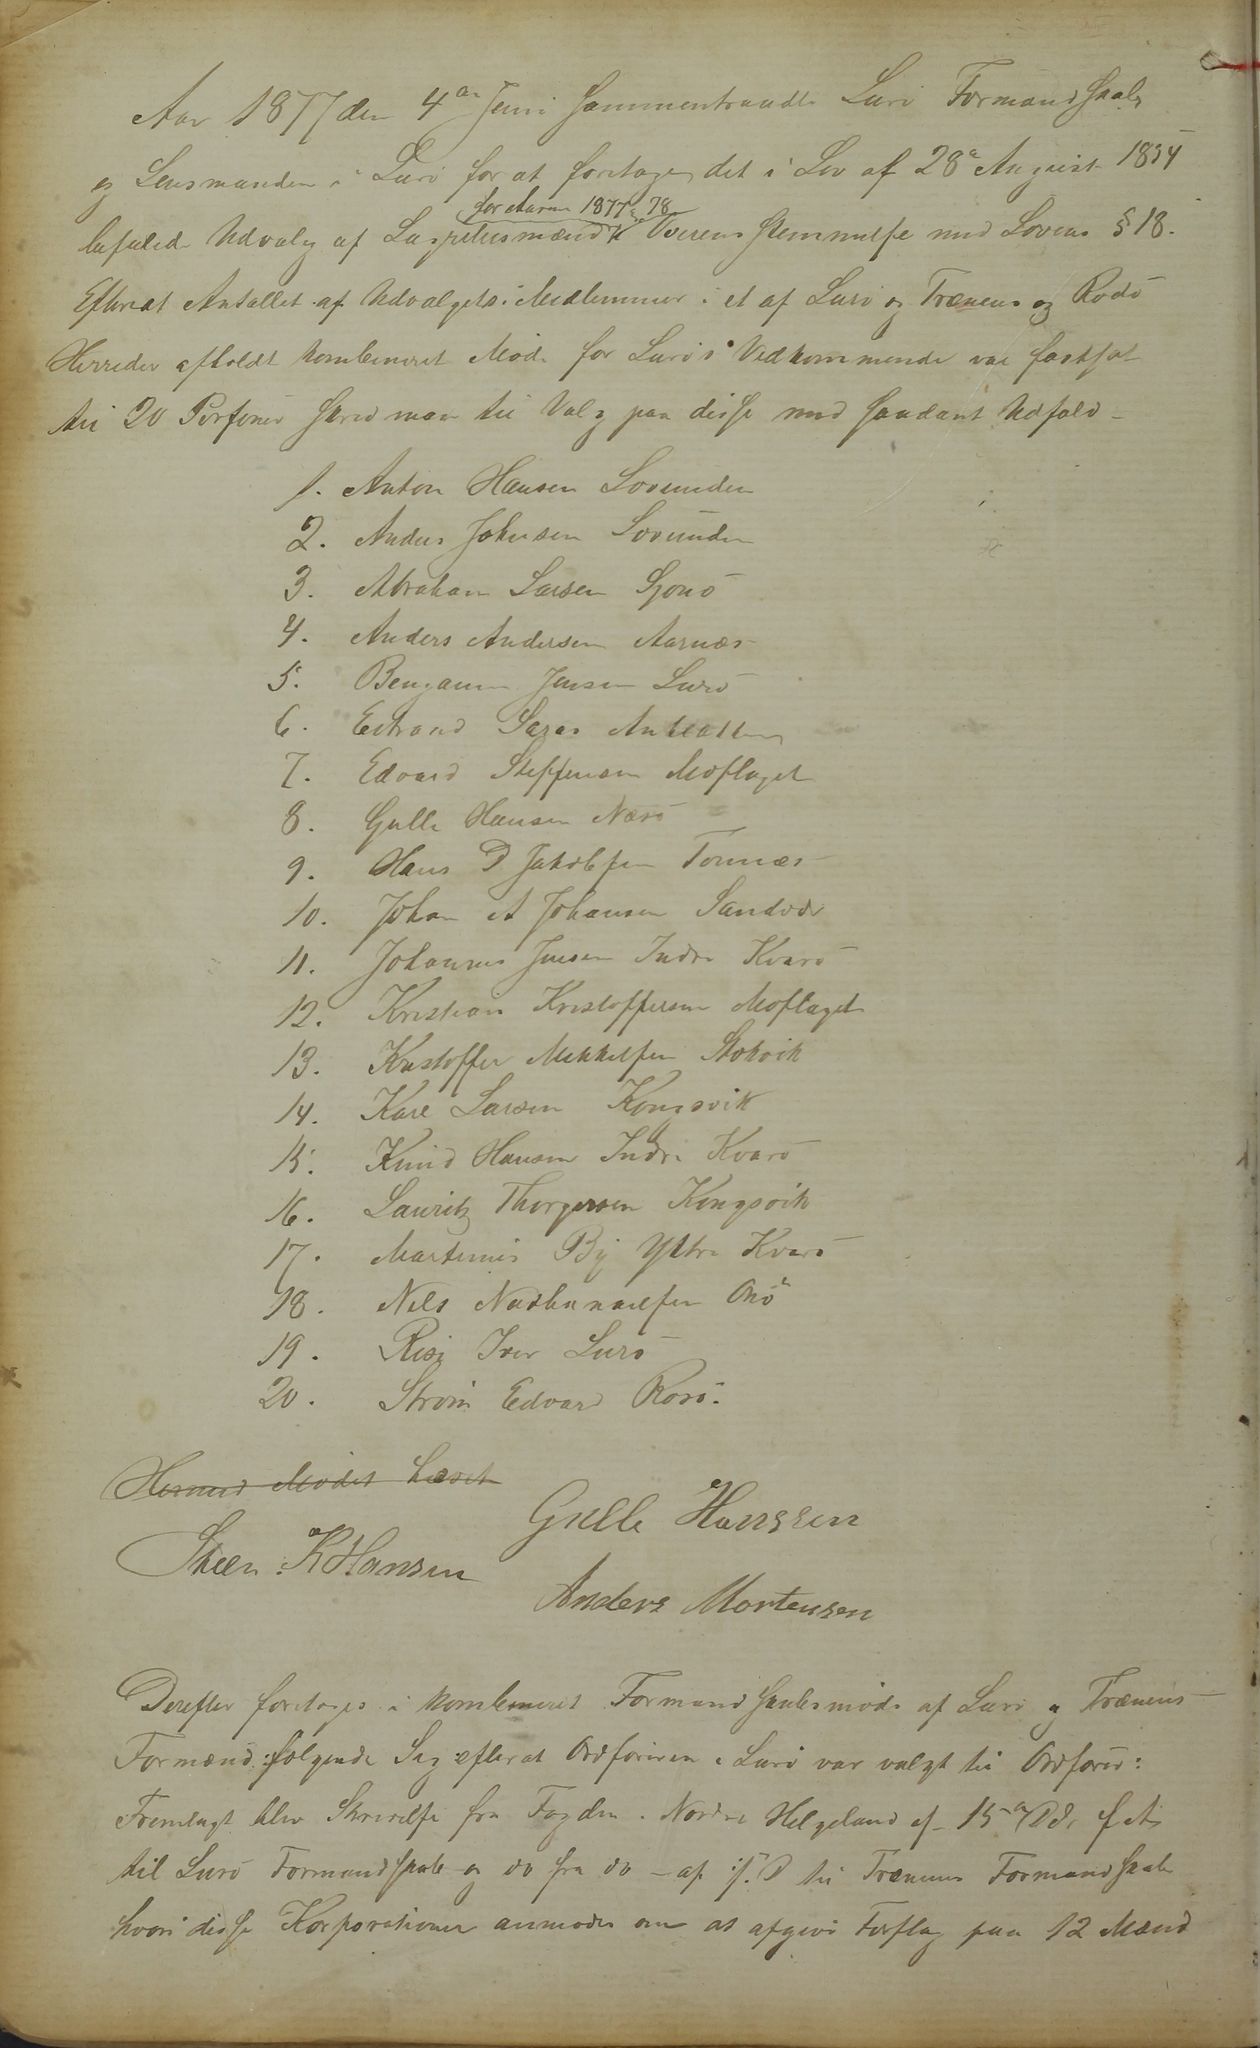 Aar 1877 den 4de Juni sammentraadte Lurö Formandskab
og Lensmanden i Lurö for at foretage det i Lov af 28de August 1854
for Aarene 1877 og 78
befalede Udvalg af Lagrettesmænd i Overensstemmelse med Lovens § 18.
Efterat Antallet af Udvalgets Medlemmer i et af Lurö og Trænens og Rödö
Herreder afholdt kombineret Möde for Lurös Vedkommende var fastsat
til 20 Personer skred man til Valg paa disse med saadant Udfald -
1. Anton Hansen Lovunden
2. Anders Johnsen Lovunden
3. Abraham Larsen Sjonö
4. Anders Andersen Aarnæs
5. Benjamin Jensen Lurö
6. Estrand
7. Edvard Steffensen Moflaget
8. Gulle Hansen Næsö
9. Hans P Jakobsen Tonnæs
10. Johan A Johansen Sandvær
11. Johannes Jensen Indre Kvarö
12. Kristian Kristoffersen Moflaget
13. Kristoffer Mikkelsen Stokvik
14. Karl Larsen Kongsvik
15. Knud Hansen Indre Kvarö
16. Lauritz Thorgersen Kongsvik
17. Martinus By Yttre Kvarö
18. Nils Nathanaelsen Onö
19. Risö Iver Lurö
20. Ström Edvard
Hermed Mödet hævet
Gulle Hanssen
Steen. K Hansen
Anders Mortensen
Derefter foretoges i kombineret Formandskabsmöde af Lurö og Trænens
Formænd fölgende Sag efterat Ordföreren i Lurö var valgt til Ordförer:
Fremlagt blev Skrivelse fra Fogden i Nordre Helgeland af 15de
til Lurö Formandskab og do fra do - af s. D til Trænens Formandskab
hvori disse Korporationer anmodes om at afgive Forslag paa 12 Mænd